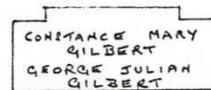 CONSTANCE MARY
GILBERT
GEORGE JULIAN
GILBERT